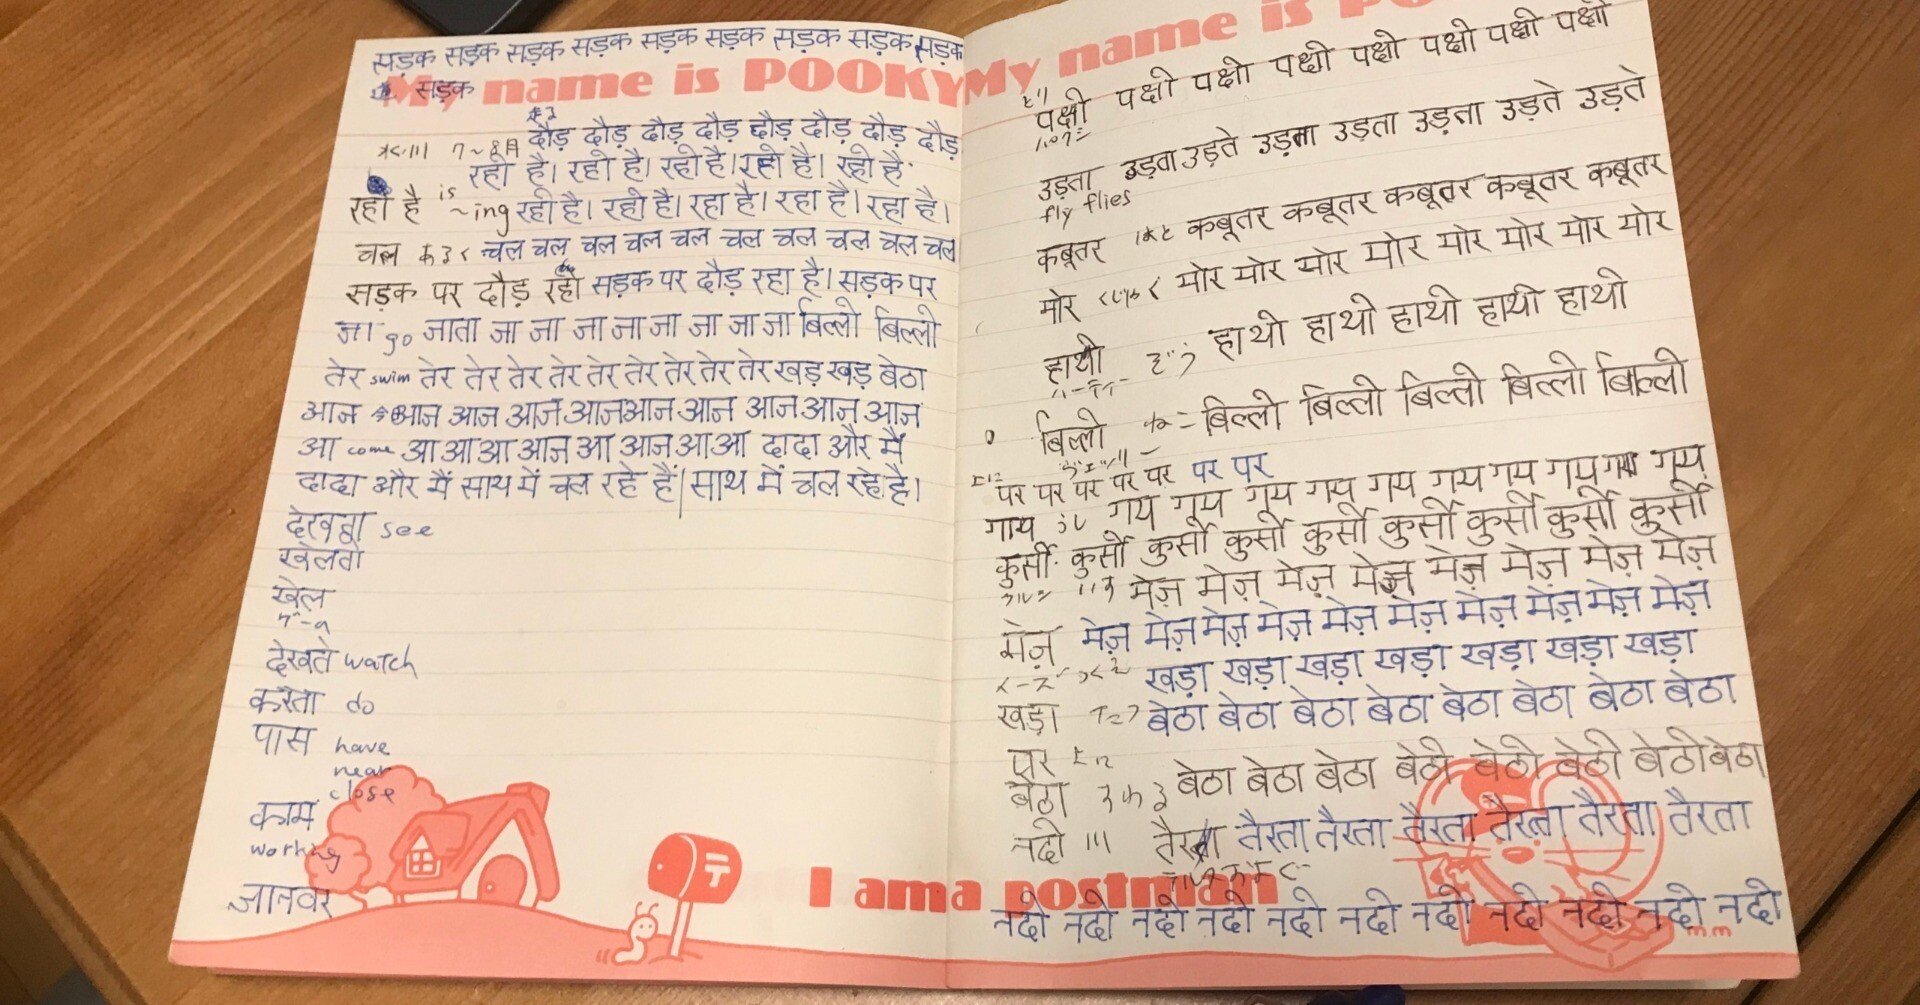 सड़क सड़क सड़क सड़क सड़क सड़क सड़क सड़क सड़क
सड़क
My name is POOKY
दौड़ दौड़ दौड़ दौड़ दौड़ दौड़ दौड़ दौड़
रही है। रही है। रही है। रही है। रही है.
रही है is ~ing रही है। रही है। रहा है। रहा है। रहा है।
चल चल चल चल चल चल चल चल चल चल चल
सड़क पर दौड़ सड़क पर दौड़ रहा है। सड़क पर
जा go जाता जा जा जा जा जा जा जा जा बिल्ली बिल्ली
तेर swim तेर तेर तेर तेर तेर तेर तेर तेर तेर खड़ खड़ बेठा
आज आज आज आज आज आज आज आज आज आज
आ come आ आ आ आज आ आज आ आ दादा और मैं
दादा और मैं साथ में चल रहे हैं। साथ में चल रहे है।
see
खेलती
खेल
देखते watch
करता do
पास have
near
close
काम
working
जानवर
I am a postman
My name is
पक्षी पक्षी पक्षी पक्षी पक्षी पक्षी पक्षी पक्षी
उड़ता उड़ता उड़ते उड़ता उड़ता उड़ता उड़ते उड़ते
fly flies
कबूतर कबूतर कबूतर कबूतर कबूतर कबूतर
मोर मोर मोर मोर मोर मोर मोर मोर मोर
हाथी हाथी हाथी हाथी हाथी हाथी
बिल्ली बिल्ली बिल्ली बिल्ली बिल्ली बिल्ली
पर पर पर पर पर पर पर
गाय गय गय गय गय गय गय गय गय गय
कुर्सी कुर्सी कुर्सी कुर्सी कुर्सी कुर्सी कुर्सी कुर्सी कुर्सी
मेज़ मेज़ मेज़ मेज़ मेज़ मेज़ मेज़ मेज़
मेज़ मेज़ मेज़ मेज़ मेज़ मेज़ मेज़ मेज़ मेज़ मेज़ मेज़
खड़ा खड़ा खड़ा खड़ा खड़ा खड़ा खड़ा
खड़ा बेठा बेठा बेठा बेठा बेठा बेठा बेठा बेठा
पर
बेठा बेठा बेठा बेठा बेठी बेठी बेठी बेठी बेठा
नदी तैरता तैरता तैरता तैरता तैरता तैरता
नदी नदी नदी नदी नदी नदी नदी नदी नदी नदी नदी